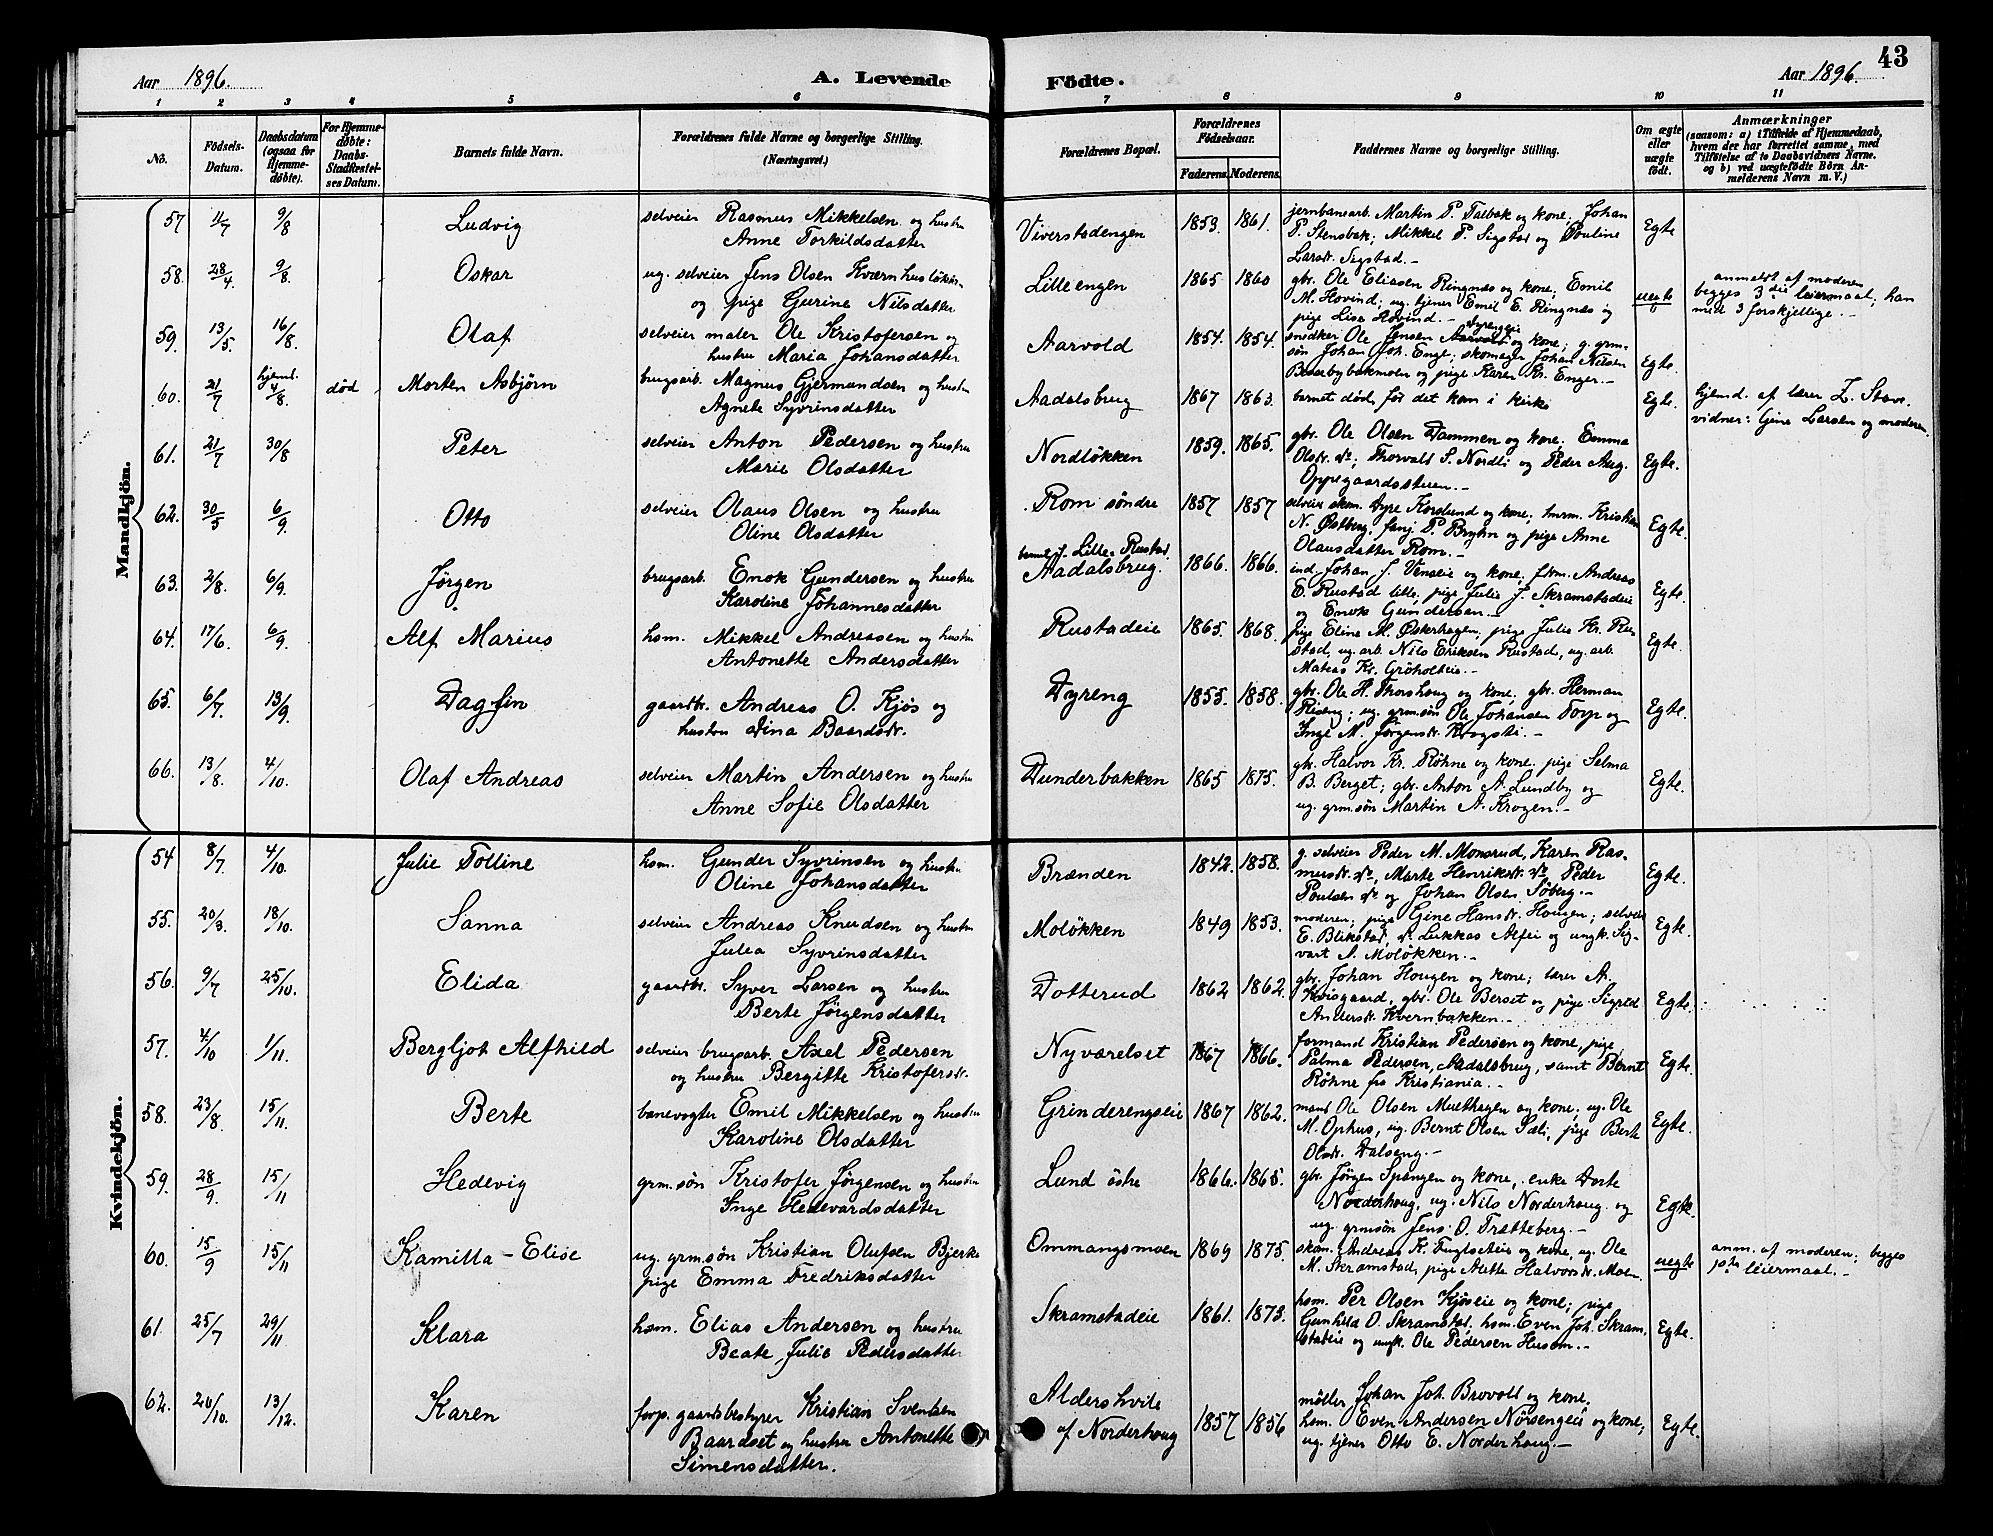 43
Aar 1896.
A. Levende
Födte.
Aar 1896.
1 2 3 4 5 6 7 8 9 10 11
No.
Födsels-
Datum.
Daabsdatum
(ogsaa for
Hjemme-
døbte).
For Hjemme-
døbte:
Daabs-
Stadfæstel-
ses Datum.
Barnets fulde Navn.
Forældrenes fulde Navne og borgerlige Stilling.
(Næringsvei.)
Forældrenes Bopæl.
Forældrenes
Födselsaar.
Faderens. Moderens.
Faddernes Navne og borgerlige Stilling.
Om ægte
eller
uægte
født.
Anmærkninger
(saasom: a) i Tilfælde af Hjemmedaab,
hvem der har forrettet samme, med
Tilføielse af to Daabsvidners Navne,
og b) ved uægtefødte Börn An-
melderens Navn m. V.)
Mandkjön.
57 4/7 9/8 Ludvig selveier Rasmus Mikkelsen og hustru
Anne Torkildsdatter
Viverstadengen 1859. 1861. jernbanearb. Martin P. Talbak og kone; Johan
P. Stensbak; Mikkel P. Sigstad og Pouline
Larsdr. Sigstad.— Egte
58. 28/4 9/8. Oskar ug. selveier Jens Olsen
og pige Gurine Nilsdatter
Lilleengen 1865 1860 gbr. Ole Eliasen Ringnæs og kone; Emil
M. Hovind; ug. tjener Emil E. Ringnæs og
pige Lise Hovind.— uegte
anmeldt af moderen
begges 3die leiermaal; han
med 3 forskjellige.—
59. 13/5 16/8. Olaf selveier maler Ole Kristofersen og
hustru Maria Johansdatter
Aarvold 1854. 1854. snedker Ole Jensen og kone; g. grm-
søn Johan Joh. Enge; skomager Johan Nilsen
og pige Karen Kr. Enger.— Egte.
60. 21/7 hjemd. 4/8. død Morten Asbjørn brugsarb. Magnus Gjermundsen og hustru
Agnete Syvrinsdatter
Aadalsbrug 1867 1863. barnet død før det kom i kirke Egte.
hjemd. af lærer Z. Stave.
vidner: Gine Larsen og moderen.
61. 21/7 30/8 Peter selveier Anton Pedersen og hustru
Marie Olsdatter
Nordløkken 1859. 1865. gbr. Ole Olsen Dammen og kone; Emma
Olsdr. ds; Thorvald S. Nordli og Peder Aug.
Oppegaardssteren.— Egte.
62. 30/5 6/9. Otto selveier Olaus Olsen og hustru
Oline Olsdatter
Rom søndre 1857 1857 selveier skom. Dyre Korslund og kone; tmrm. Kristian
N. Østberg, fanj. P. Bryhn og pige Anne
Olausdatter Rom.— Egte.
63. 2/8. 6/9. Jørgen brugsarb. Enok Gundersen og hustru
Karoline Johannesdatter
Lille-Rustad.
Aadalsbrug. 1866. 1866. ind. Johan J. Venseie og kone; fkm. Andreas
E. Rustad lille, pige Julie J. Skramstadeie
og Enok Gundersen.— Egte.
64. 17/6. 6/9. Alf Marius hsm. Mikkel Andreasen og hustru
Antonette Andersdatter
Rustadeie 1865. 1868. pige Eline M. Østerhagen, pige Julie Kr. Ru-
stad, ug. arb. Nils Eriksen Rustad, ug. arb.
Mateas Kr. Grøholteie.— Egte.
65. 6/7. 13/9. Dagfin gaardbr. Andreas O. Kjøs og
hustru Dina Baardsdr.
Dyreng 1855. 1858. gbr. Ole H. Thorshaug og kone; gbr. Herman
Risberg; ug. grm.søn Ole Johansen Torp og
Inge M. Jørgensdr. Krogsti.— Egte.
66. 13/8. 4/10. Olaf Andreas selveier Martin Andersen og hustru
Anne Sofie Olsdatter
Dunderbakken 1865 1875. gbr. Halvor Kr. Røhne og kone; pige Selma
B. Berget; gbr. Anton A. Lundby og
ug. grm.søn Martin A. Krogen.— Egte.
Kvindekjön.
54 8/7 4/10. Julie Tolline hsm. Gunder Syvrinsen og hustru
Oline Johansdatter
Brænden 1842. 1858. g. selveier Peder M. Monsrud, Karen Ras-
musdr. ds, Marte Henriksdr. ds, Peder
Poulsen ds og Johan Olsen Søberg.— Egte.
55. 20/3. 18/10. Sanna selveier Andreas Knudsen og hustru
Julea Syvrinsdatter
Moløkken 1849 1853. moderen; pige Gine Hansdr. Hougen; selveier
E. Blikstad, ds Lukkas Alfei og ungk. Sig-
vart S. Moløkken.— Egte.
56. 9/7 25/10. Elida gaardbr. Syver Larsen og hustru
Berte Jörgensdatter
Dotterud 1862 1862. gbr. Johan Hougen og kone; lærer A.
Kvisgaard, gbr. Ole Berset og pige Sigrid
Andersdr. Kvernbakken.— Egte.
57. 4/10 1/11. Bergljot Alfhild selveier brugsarb. Axel Pedersen
og hustru Bergitte Kristofersdr.
Nyværelset 1867 1866. formand Kristian Pedersen og kone, pige
Palma Pedersen, Aadalsbrug, samt Bernt
Røhne fra Kristiania.— Egte.
58. 23/8. 15/11. Berte banevogter Emil Mikkelsen og hustru
Karoline Olsdatter
Grinderengseie 1867 1862. maas Ole Olsen Muethagen og kone; ug. Ole
M. Ophus, ug. Bernt Olsen Sæli, pige Berte
Olsdr. Dalseng.— Egte.
59. 28/9. 15/11 Hedevig grm.søn Kristofer Jørgensen og hustru
Inge Hedevardsdatter
Lund østre 1866. 1865. gbr. Jørgen Spangen og kone, enke Dorte
Norderhoug, ug. Nils Norderhoug og
ug. grmsøn Jens O. Trætteberg.— Egte.
60. 15/9 15/11 Kamilla-Elise ug. grm.søn Kristian Olufsen Bjerke
pige Emma Fredriksdatter
Ommangsmoen 1869 1875. skom. Andreas K. Fuglseteie og kone, ug. Ole
M. Skramstad, pige Alette Halvorsdr. Moen. uegte
anm. af moderen; begges
1ste leiermaal.—
61. 25/7 29/11 Klara hsm. Elias Andersen og hustru
Beate Julie Pedersdatter
Skramstadeie 1861. 1873. hsm. Per Olsen Kjøseie og kone; pige
Gunhild O. Skramstad, hsm. Even Joh. Skram-
stadeie og ungk. Ole Pedersen Husom.— Egte.
62. 20/10. 13/12. Karen forp. gaardsbestyrer Kristian Svendsen
Baardset og hustru Antonette
Simensdatter.
Aldershvile
af Norderhoug 1857 1856 møller Johan Joh. Brovoll og kone,
hsm. Even Andersen Nørsengeie og kone;
ug. tjener Otto E. Norderhoug.— Egte.